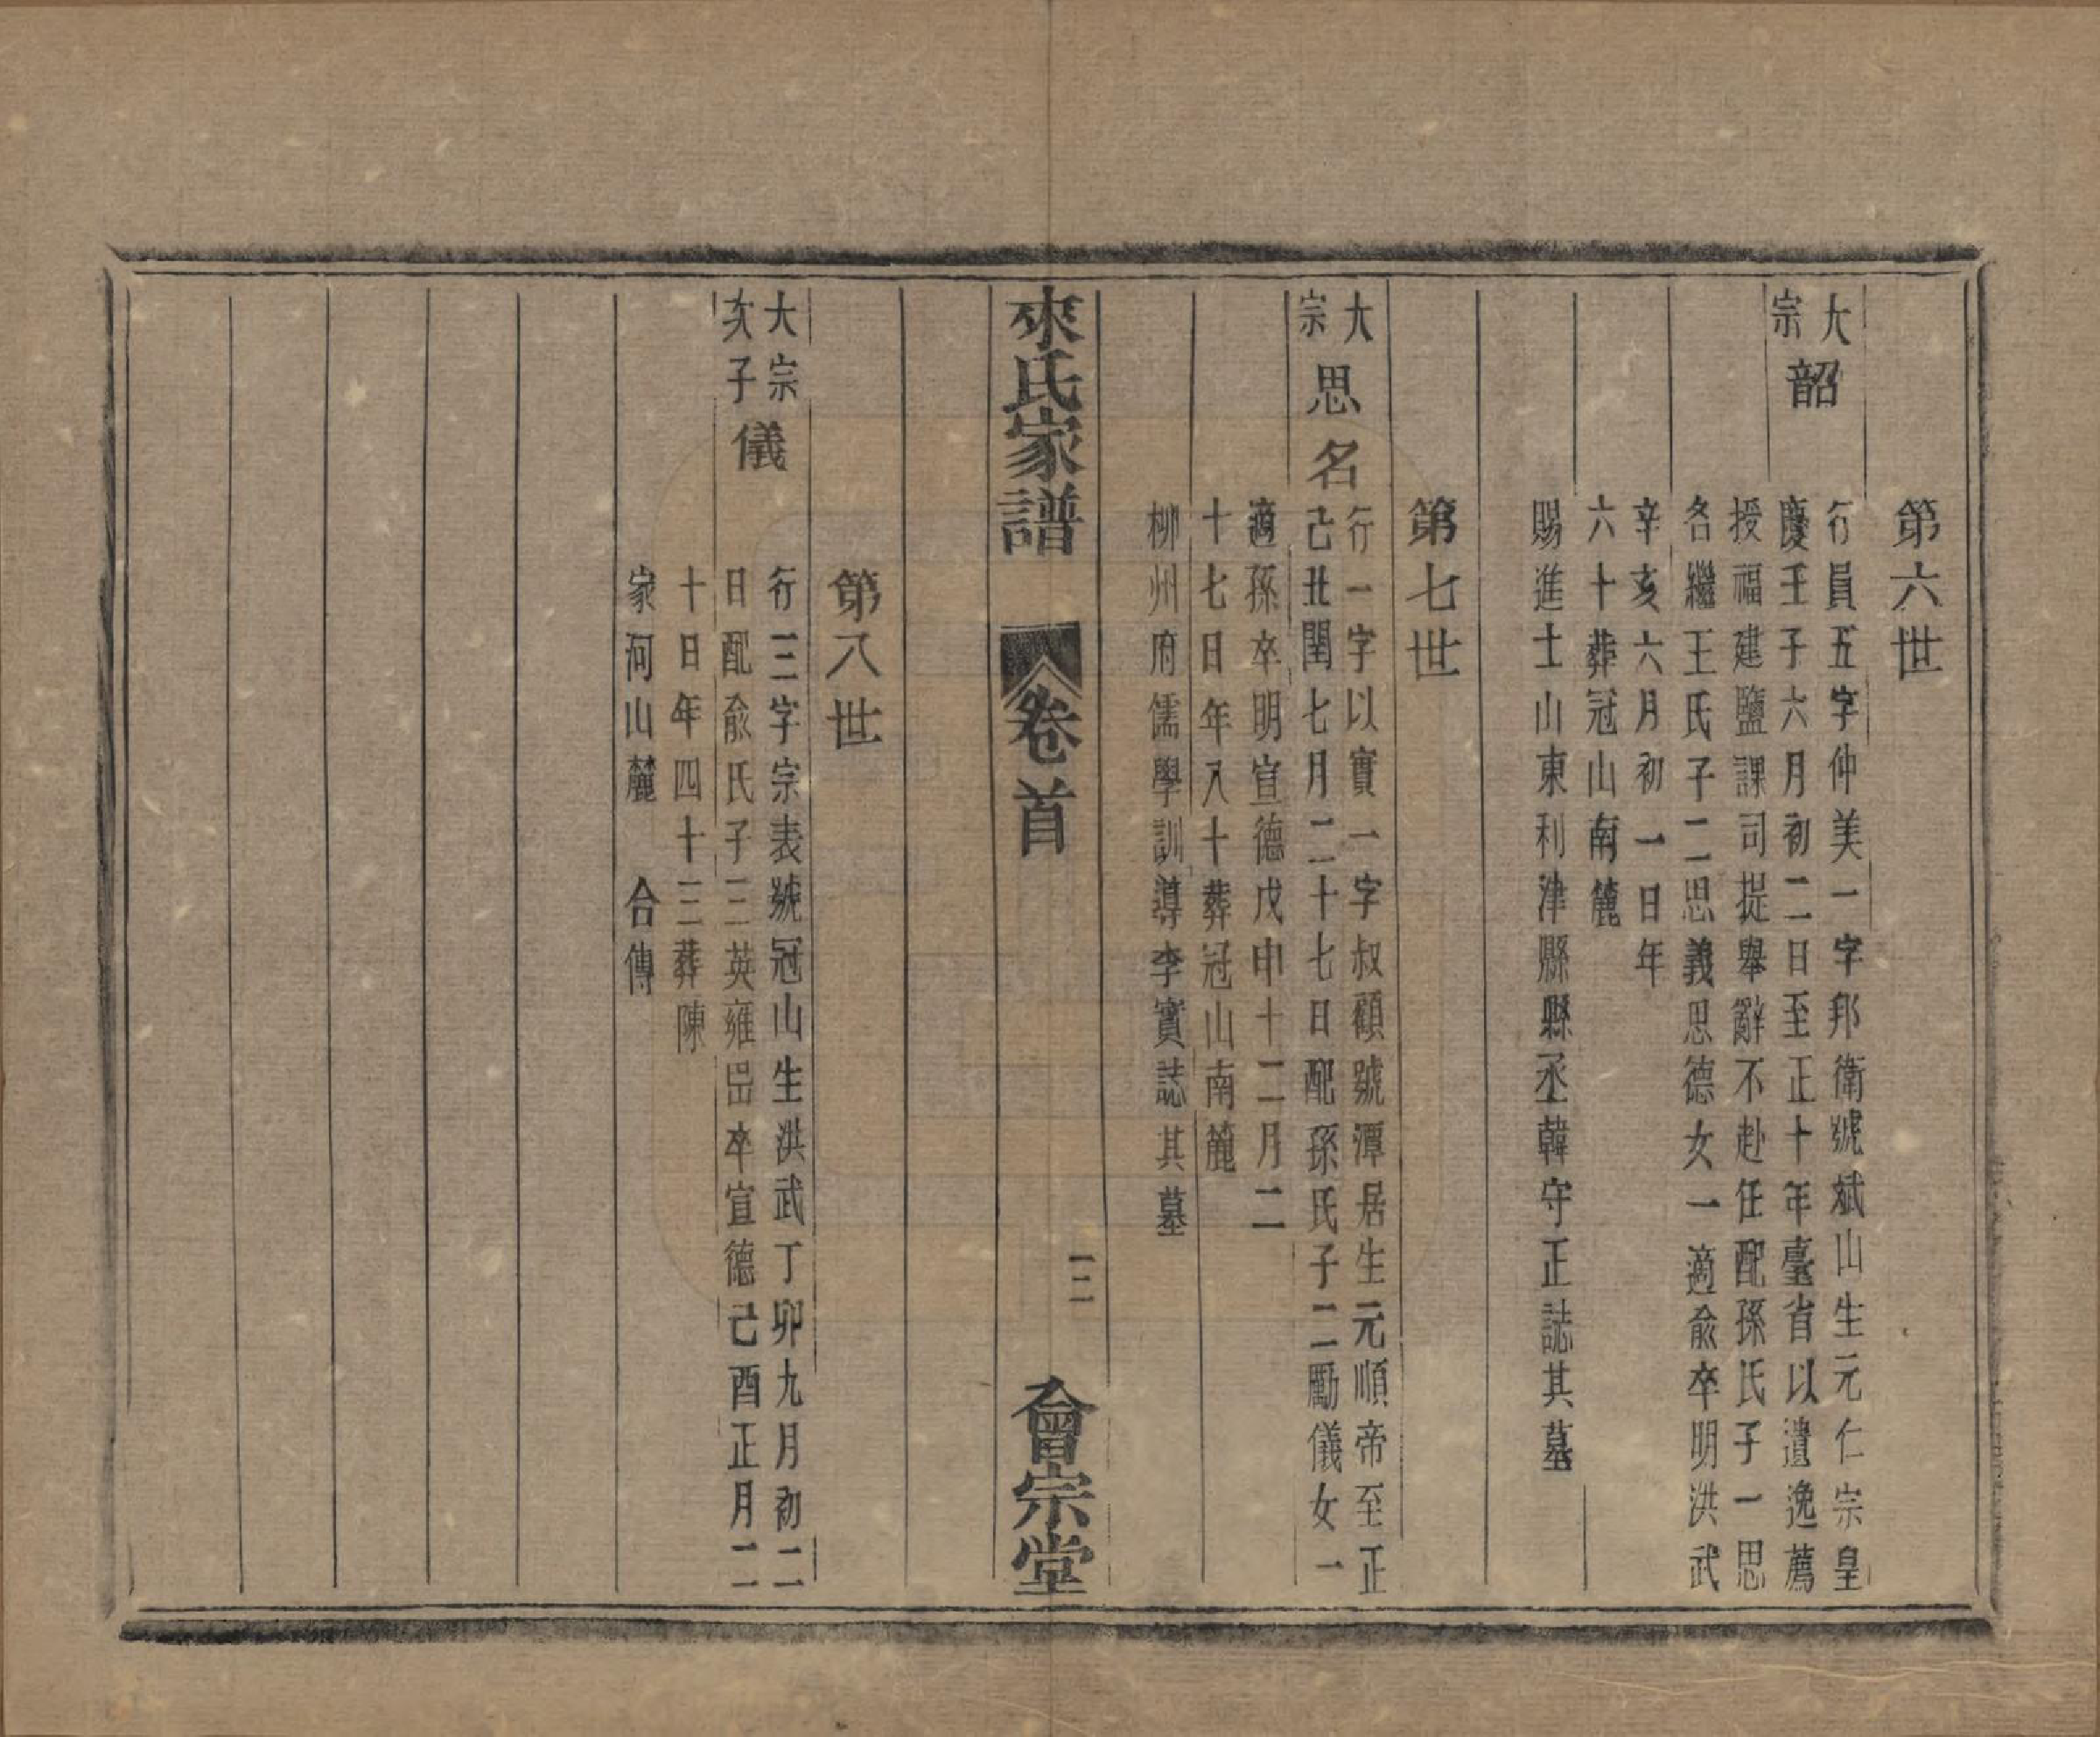 第六世
大宗 韶
行員五字仲美一字邦衛號斌山生元仁宗皇
慶壬子六月初二日至正十年臺省以遺逸薦
授福建鹽課司提舉辭不赴任配孫氏子一思
名繼王氏子二思義思德女一適俞卒明洪武
辛亥六月初一日年
六十葬冠山南麓
賜進士山東利津縣縣丞韓守正誌其墓
第七世
大宗 思名
行一字以實一字叔顧號潭居生元順帝至正
己丑閏七月二十七日配孫氏子二勵儀女一
適孫卒明宣德戊申十二月二
十七日年八十葬冠山南麓
柳州府儒學訓導李實誌其墓
來氏家譜 卷首 二 會宗堂
第八世
大宗次子 儀
行三字宗表號冠山生洪武丁卯九月初二
日配俞氏子三英雍嵒卒宣德己酉正月二
十日年四十三葬陳
家河山麓 合傳